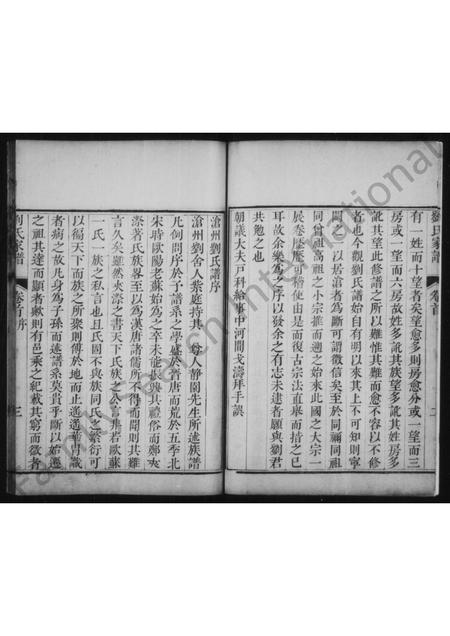 有一姓而十望者矣望愈多則房愈分或一望而三
房或一望而六房故姓多訛其族望多訛其房多
訛其望此修譜之所以難惟其難而愈不容以不修
者也今觀劉氏譜始自有明以來其上不可知則寧
闕以居滄者為斷可謂徵信矣至於同禰同祖
同曾祖高祖之小宗推而遡之始來此國之大宗一
展卷歷歷可稽使由是而復古宗法直舉而措之已
耳故余樂為之序以發余之有志未逮者願與劉君
共勉之也
朝議大夫戶科給事中河間戈濤拜手譔
劉氏家譜 卷首
滄州劉氏譜序
滄州劉舍人紫庭持其尊人靜園先生所述族譜
凡例問序於予譜系之學盛於晉唐而荒於五季北
宋時歐陽老蘇始為之卒未能與其禮俗而鄭夾
漈著氏族畧至以為漢唐諸儒所不得而聞則其難
言久矣雖然夾漈之書天下氏族之公言也若歐蘇
一氏一族之私言也且氏固不與族同氏之繁衍可
以徧天下而族之所聚則傅於地而止遙遙華冑識
者病之故凡身為子孫而述譜系莫貴乎斷以始遷
之祖其達而顯者歟則有邑乘之紀載其窮而微者
劉氏家譜 卷首 序 三